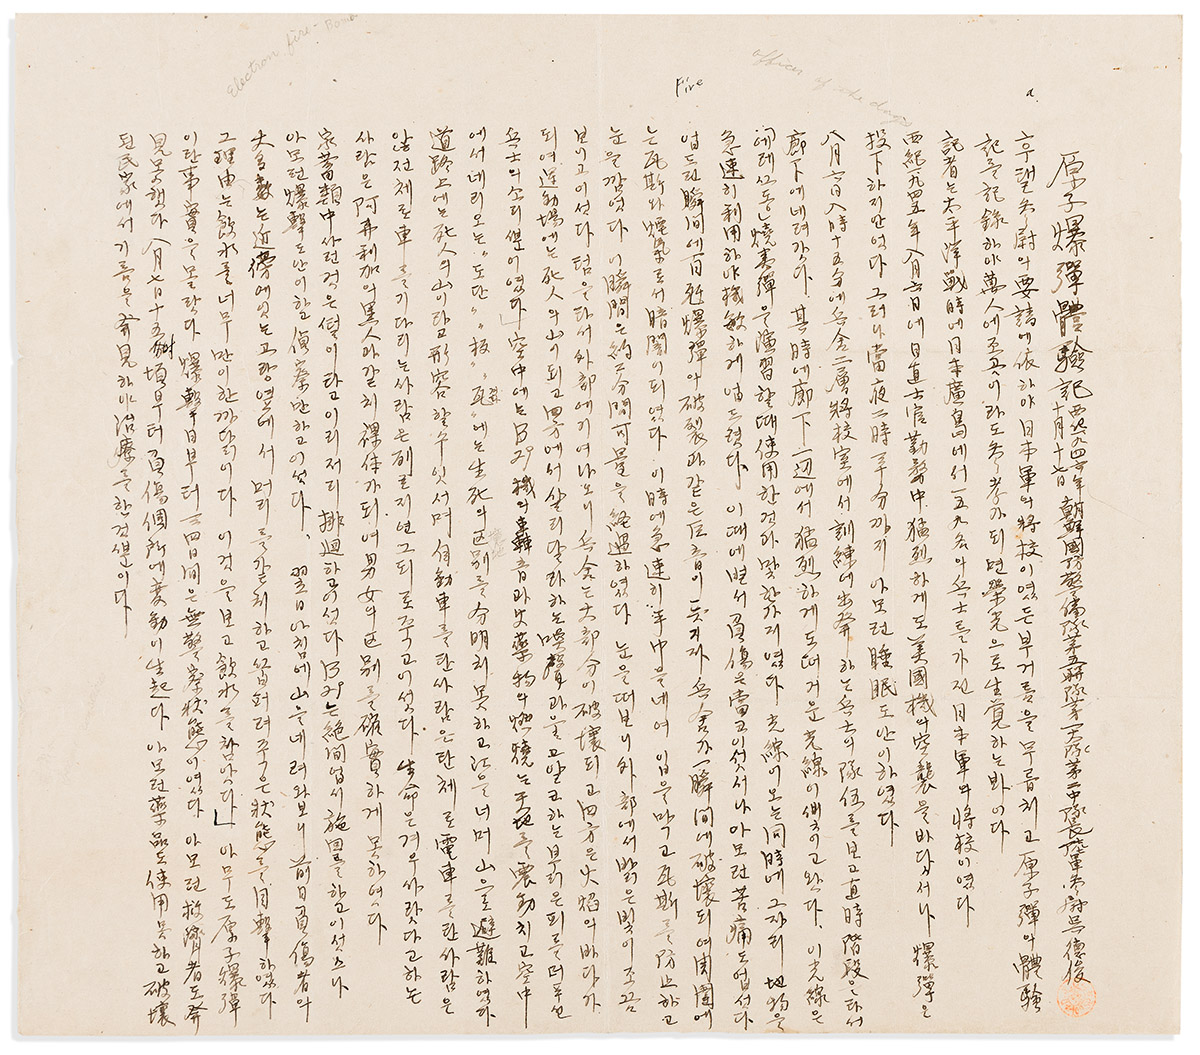 Electron fire-Bomb
offices of the day
Fire
a.
原子爆彈體驗記 西紀一九四 年 十月十七日 朝鮮國防警備隊第五聯隊第一大隊第二中隊長陸軍 尉吳德俊
大尉의 要請에 依하야 日本軍의 將校이였든 부거름을 무릅치고 原子彈의 體驗
記를 記錄하야 萬人에 조곰이라도 參考가 되면 榮光으로 生覺하는바이다
記者는 太平洋戰時에 日本廣島에서 一五九名의 兵士를 가진 日本軍의 將校이였다
西紀一九四五年八月六日에 日直士官勤務中 猛烈하게도 美國機의 空襲을 바다서나 爆彈은
投下하지 안었다 그러나 當夜二時三十分까지 아모런 睡眠도 안이하였다
八月六日八時十五分에 兵舍二層將校室에서 訓練에 出發하는 兵士의 隊伍를 보고 直時階段을 타서
廊下에 네려갔다. 其時에 廊下一辺에서 猛烈하게도 떠거운 光線이 빛이고 왔다. 이 光線은
燒夷彈을 演習할때 使用한것과 맟한가지였다 光線이 오는 同時에 그자리 地物을
急速히 利用하야 機敏하게 업드렸다. 이때에 벌서 負傷은 當코이섯서나 아모런 苦痛도 업섯다
업드린 瞬間에 百 爆彈이 破裂과 같은 巨音이 들이자 兵舍가 一瞬間에 破壞되여 周圍에
는 瓦斯와 煙氣로서 暗闇이 되였다. 이때에 急速히 手巾을 네여 입을 막고 瓦斯를 防止하고
눈을 깜었다 이 瞬間은 約二分間可量을 經過하였다 눈을 떠보니 外部에서 밝은 빛이 조끔
보이고이섯다 텀을 타서 外部에 기여나오니 兵舍는 大部分이 破壞되고 四方은 火焰의 바다가
되여 運動場에는 死人의 山이 되고 四方에서 살리달라하는 喚聲과 을고 알코하는 부러은 피를 떠푸선
兵士의 소리뿐이였다」 空中에는 B29機의 轟音과 火藥物의 燃燒는 天地를 震動치고 空中
에서 네리오는 도단 板 瓦 에는 生死의 区別을 分明치 못하고 江을 너머 山을 避難하였다
道路上에는 死人의 山이라고 形容할수 잇서며 自動車를 탄 사람은 탄체로 電車를 탄 사람은
앉전체로 車를 기다리는 사람은 그되로 죽고이섯다. 生命은 겨우 사랏다고하는
사람은 阿弗利加의 黑人과같치 裸体가 되여 男女의 区別을 確實하게 못하였다
家畜類中 사런것은 털이 타고 이리저리 排迴하고이섯다 B29는 絶間업서 施囬를 하고이섯스나
아모런 爆擊도 안이할 偵察만 하고이섯다. 翌日아침에 山을 네려와보니 前日負傷者의
大多數는 近傍에잇는 고랑옆에서 머리를 같치하고 쓸어려 죽은 狀態를 目擊하였다
그 理由는 飮水를 너무 만이한까닭이다 이것을 보고 飮水를 참았다」 아무도 原子爆彈
이란 事實을 몰랐다 爆擊日부터 三四日間은 無警察狀態이였다 아모런 救濟者도 發
見못했다 八月七日十五時頃부터 負傷個所에 變動이 生起다 아모런 藥品도 使用못하고 破壞
된 民家에서 기름을 發見하야 治療를 한것뿐이다